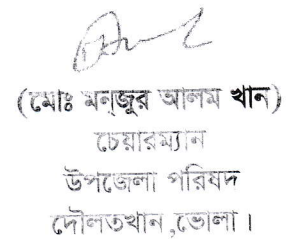 (মোঃ মন্‌জুর আলম খান)
চেয়ারম্যান
উপজেলা পরিষদ
দৌলতখান ,ভোলা।